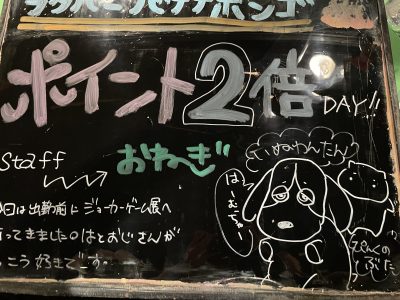 ポイント2倍DAY!!
Staff
おねぎ
今日は出勤前にジョーカーゲーム展へ
行ってきました。はとおじさんが
っこう好きです。
いぬわんたん
はーむちゅー
ぴんくの
ぶた